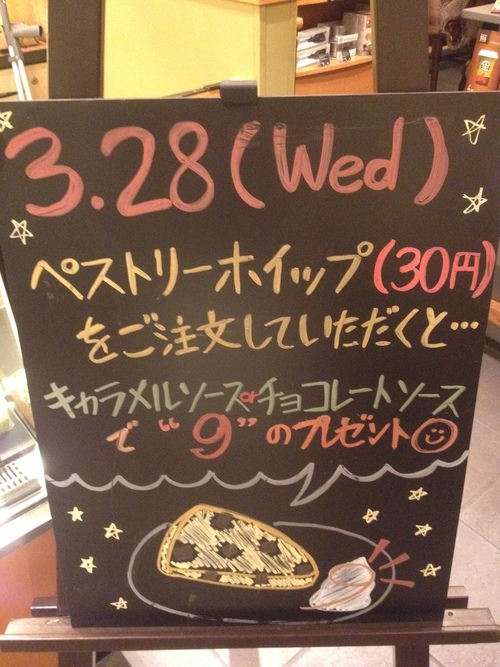 3.28(Wed)
ペストリーホイップ(30円)
をご注文していただくと…
キャラメルソースorチョコレートソース
で“9”のプレゼント